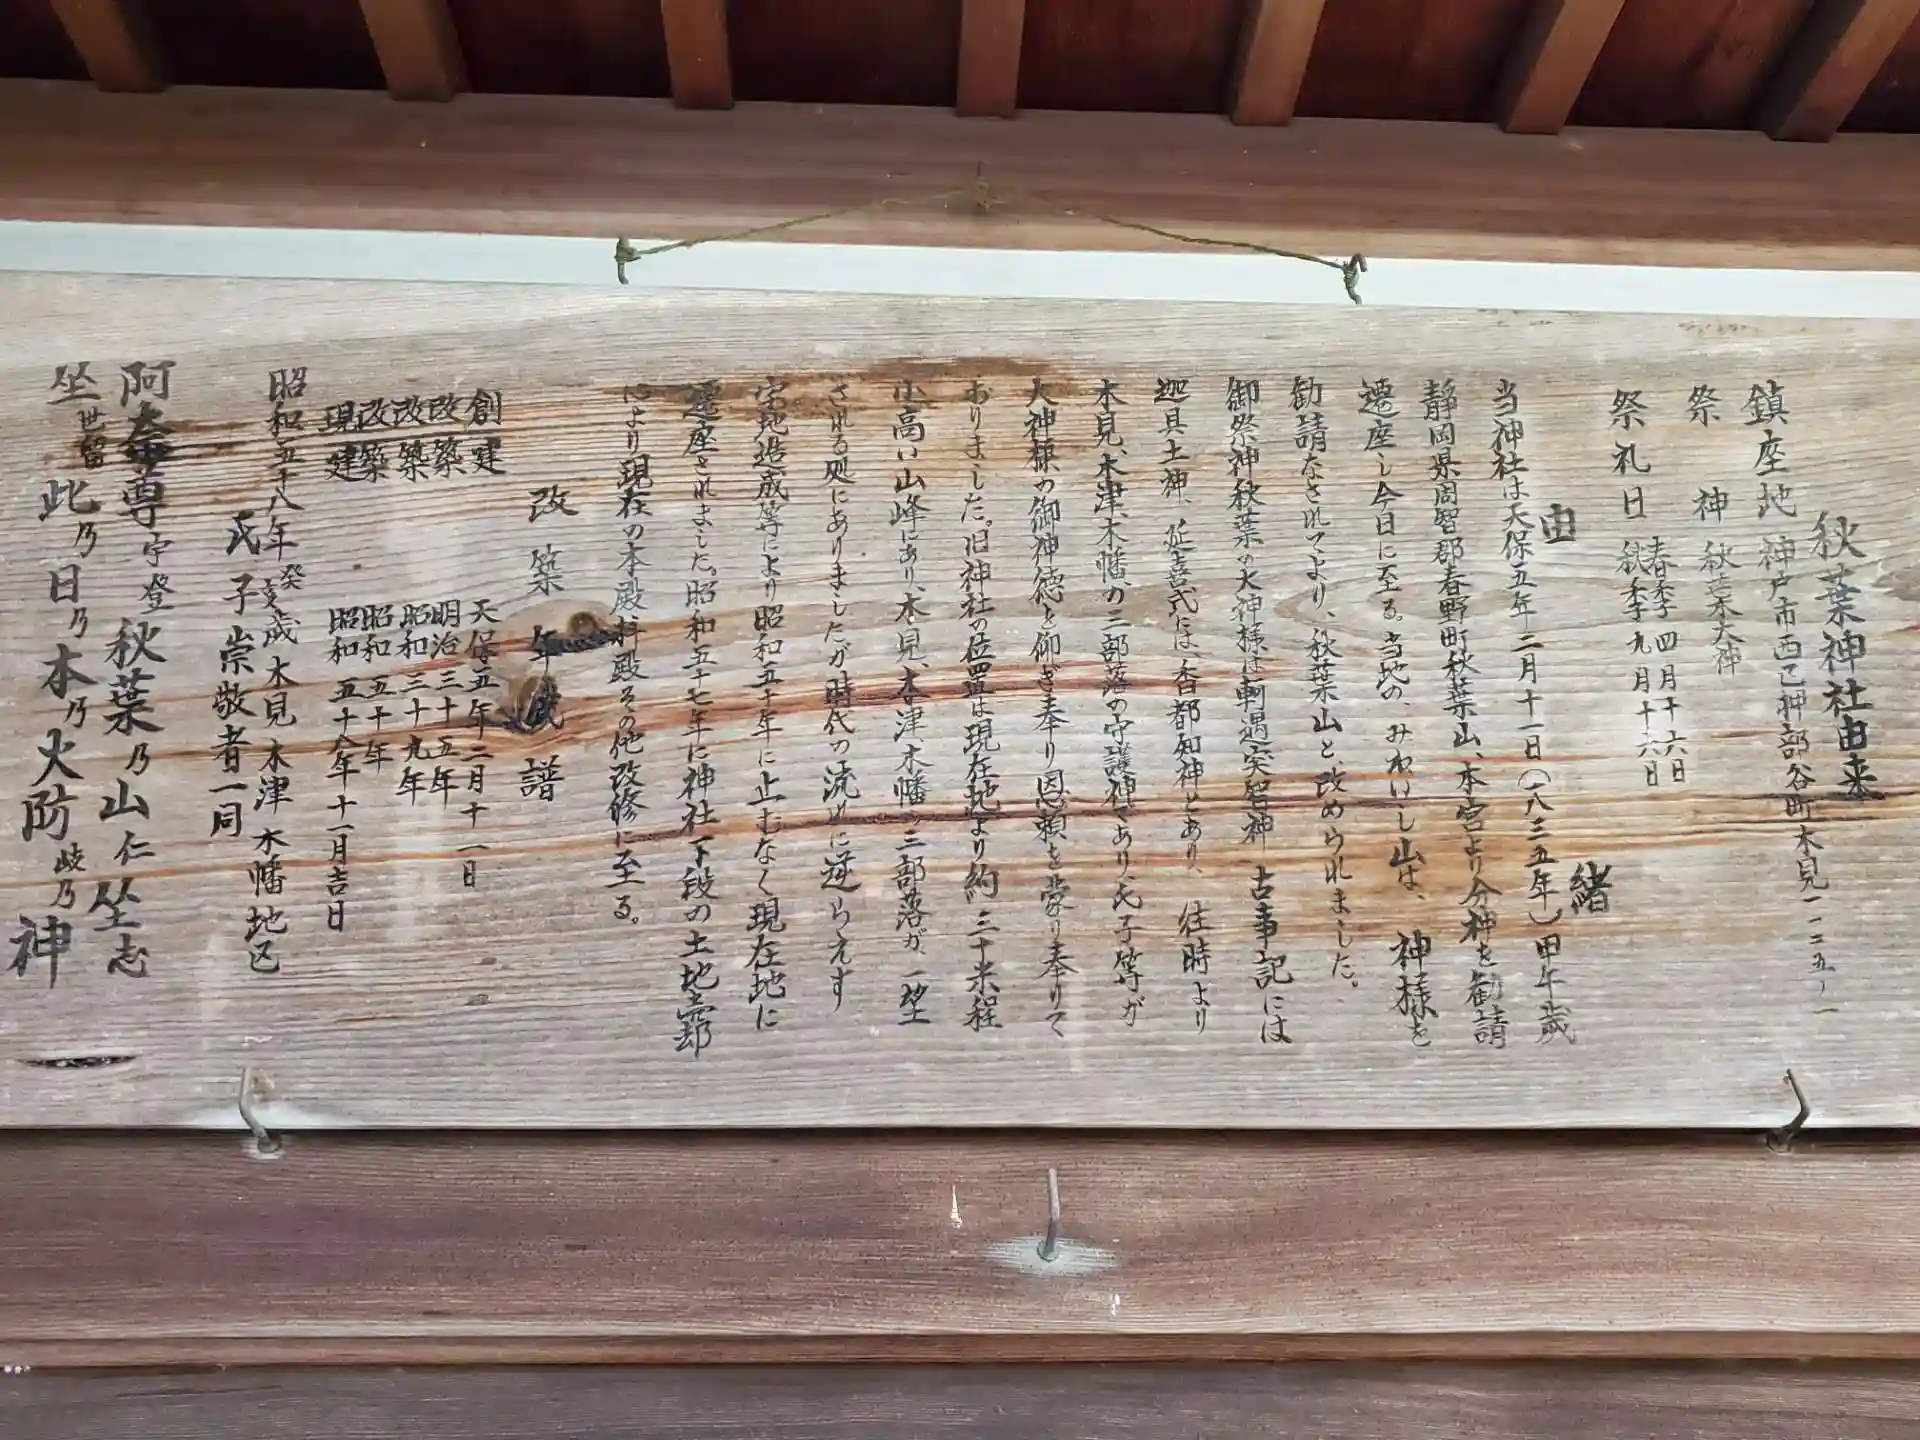 秋葉神社由来
鎮座地 神戸市西区押部谷町木見一一二五ノ一
祭神 秋葉大神
祭礼日 春季 四月十六日
秋季 九月十六日
由緒
当神社は天保五年二月十一日(一八三五年)甲午歳
静岡県周智郡春野町秋葉山、本宮より分神を勧請
遷座し今日に至る。当地の、みねいし山は、神様を
勧請なされてより、秋葉山と、改められました。
御祭神秋葉の大神様は軻遇突智神 古事記には
迦具土神、延喜式には、香都知神とあり、往時より
木見、木津、木幡、の三部落の守護神であり、氏子等が
大神様の御神徳を仰ぎ奉り恩頼を蒙り奉りて
おりました。旧神社の位置は現在地より約三十米程
小高い山峰にあり、木見、木津、木幡の三部落が、一望
される処にありましたが時代の流れに逆らえず
宅地造成等により昭和五十年に止むなく現在地に
遷座されました。昭和五十七年に神社下段の土地売却
により現在の本殿拝殿その他改修に至る。
改築年歳譜
創建 天保五年二月十一日
改築 明治三十五年
改築 昭和三十九年
改築 昭和五十年
現建 昭和五十八年十一月吉日
昭和五十八年 癸亥歳 木見 木津 木幡 地区
氏子崇敬者一同
阿奈尊宇登秋葉乃山仁坐志
坐世留此乃日乃本乃火防岐乃神